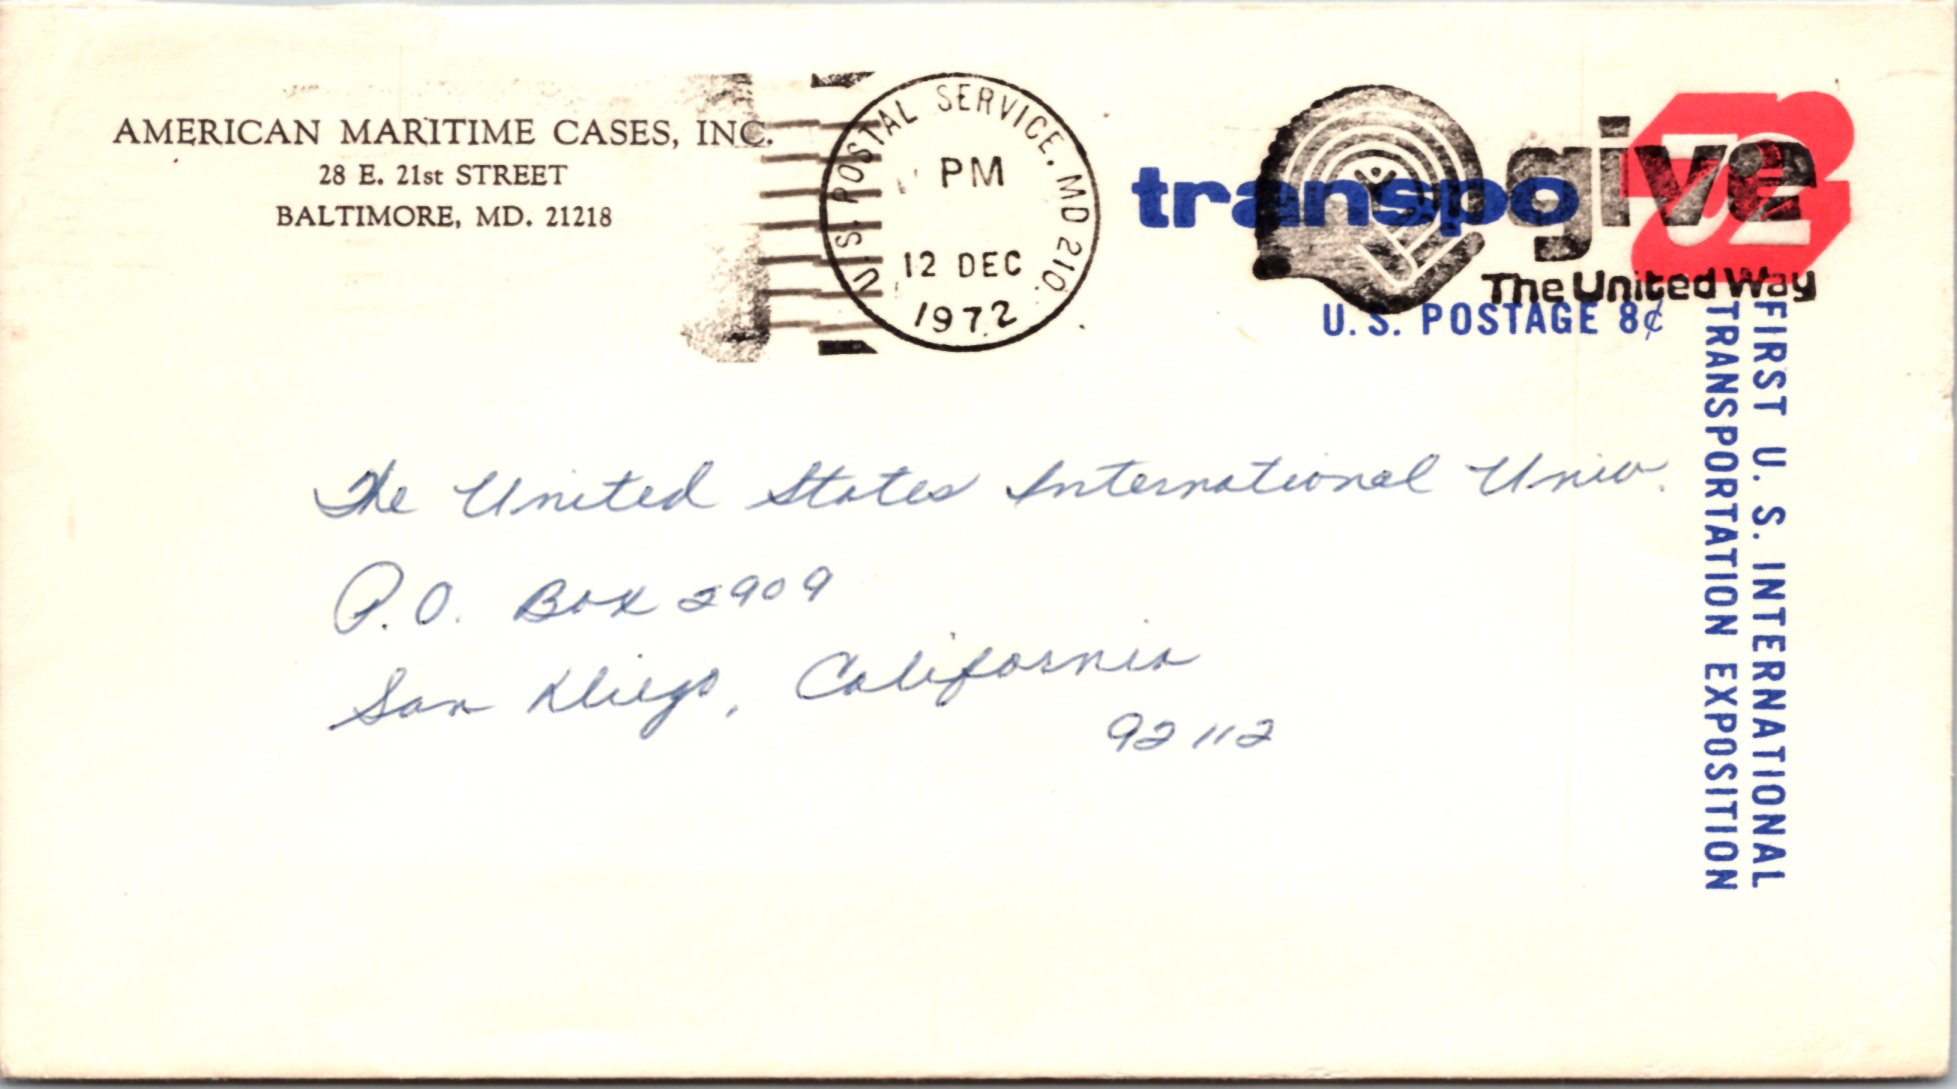 AMERICAN MARITIME CASES, INC.
28 E. 21st STREET
BALTIMORE, MD. 21218
U.S. POSTAL SERVICE, MD 210
PM
12 DEC
1972
transpo 72
give
The United Way
U.S. POSTAGE 8¢
FIRST U. S. INTERNATIONAL
TRANSPORTATION EXPOSITION
The United States International Univ.
P.O. Box 2909
San Diego, California
92112